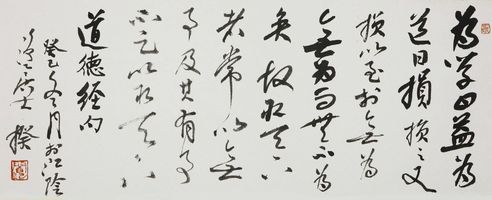 為学日益為
道日損損之又
損以至於無為
無为而無不為
矣故取天下
者常以無
事及其有事
不足以取天下
道德經句
癸巳冬月於江陰
居士